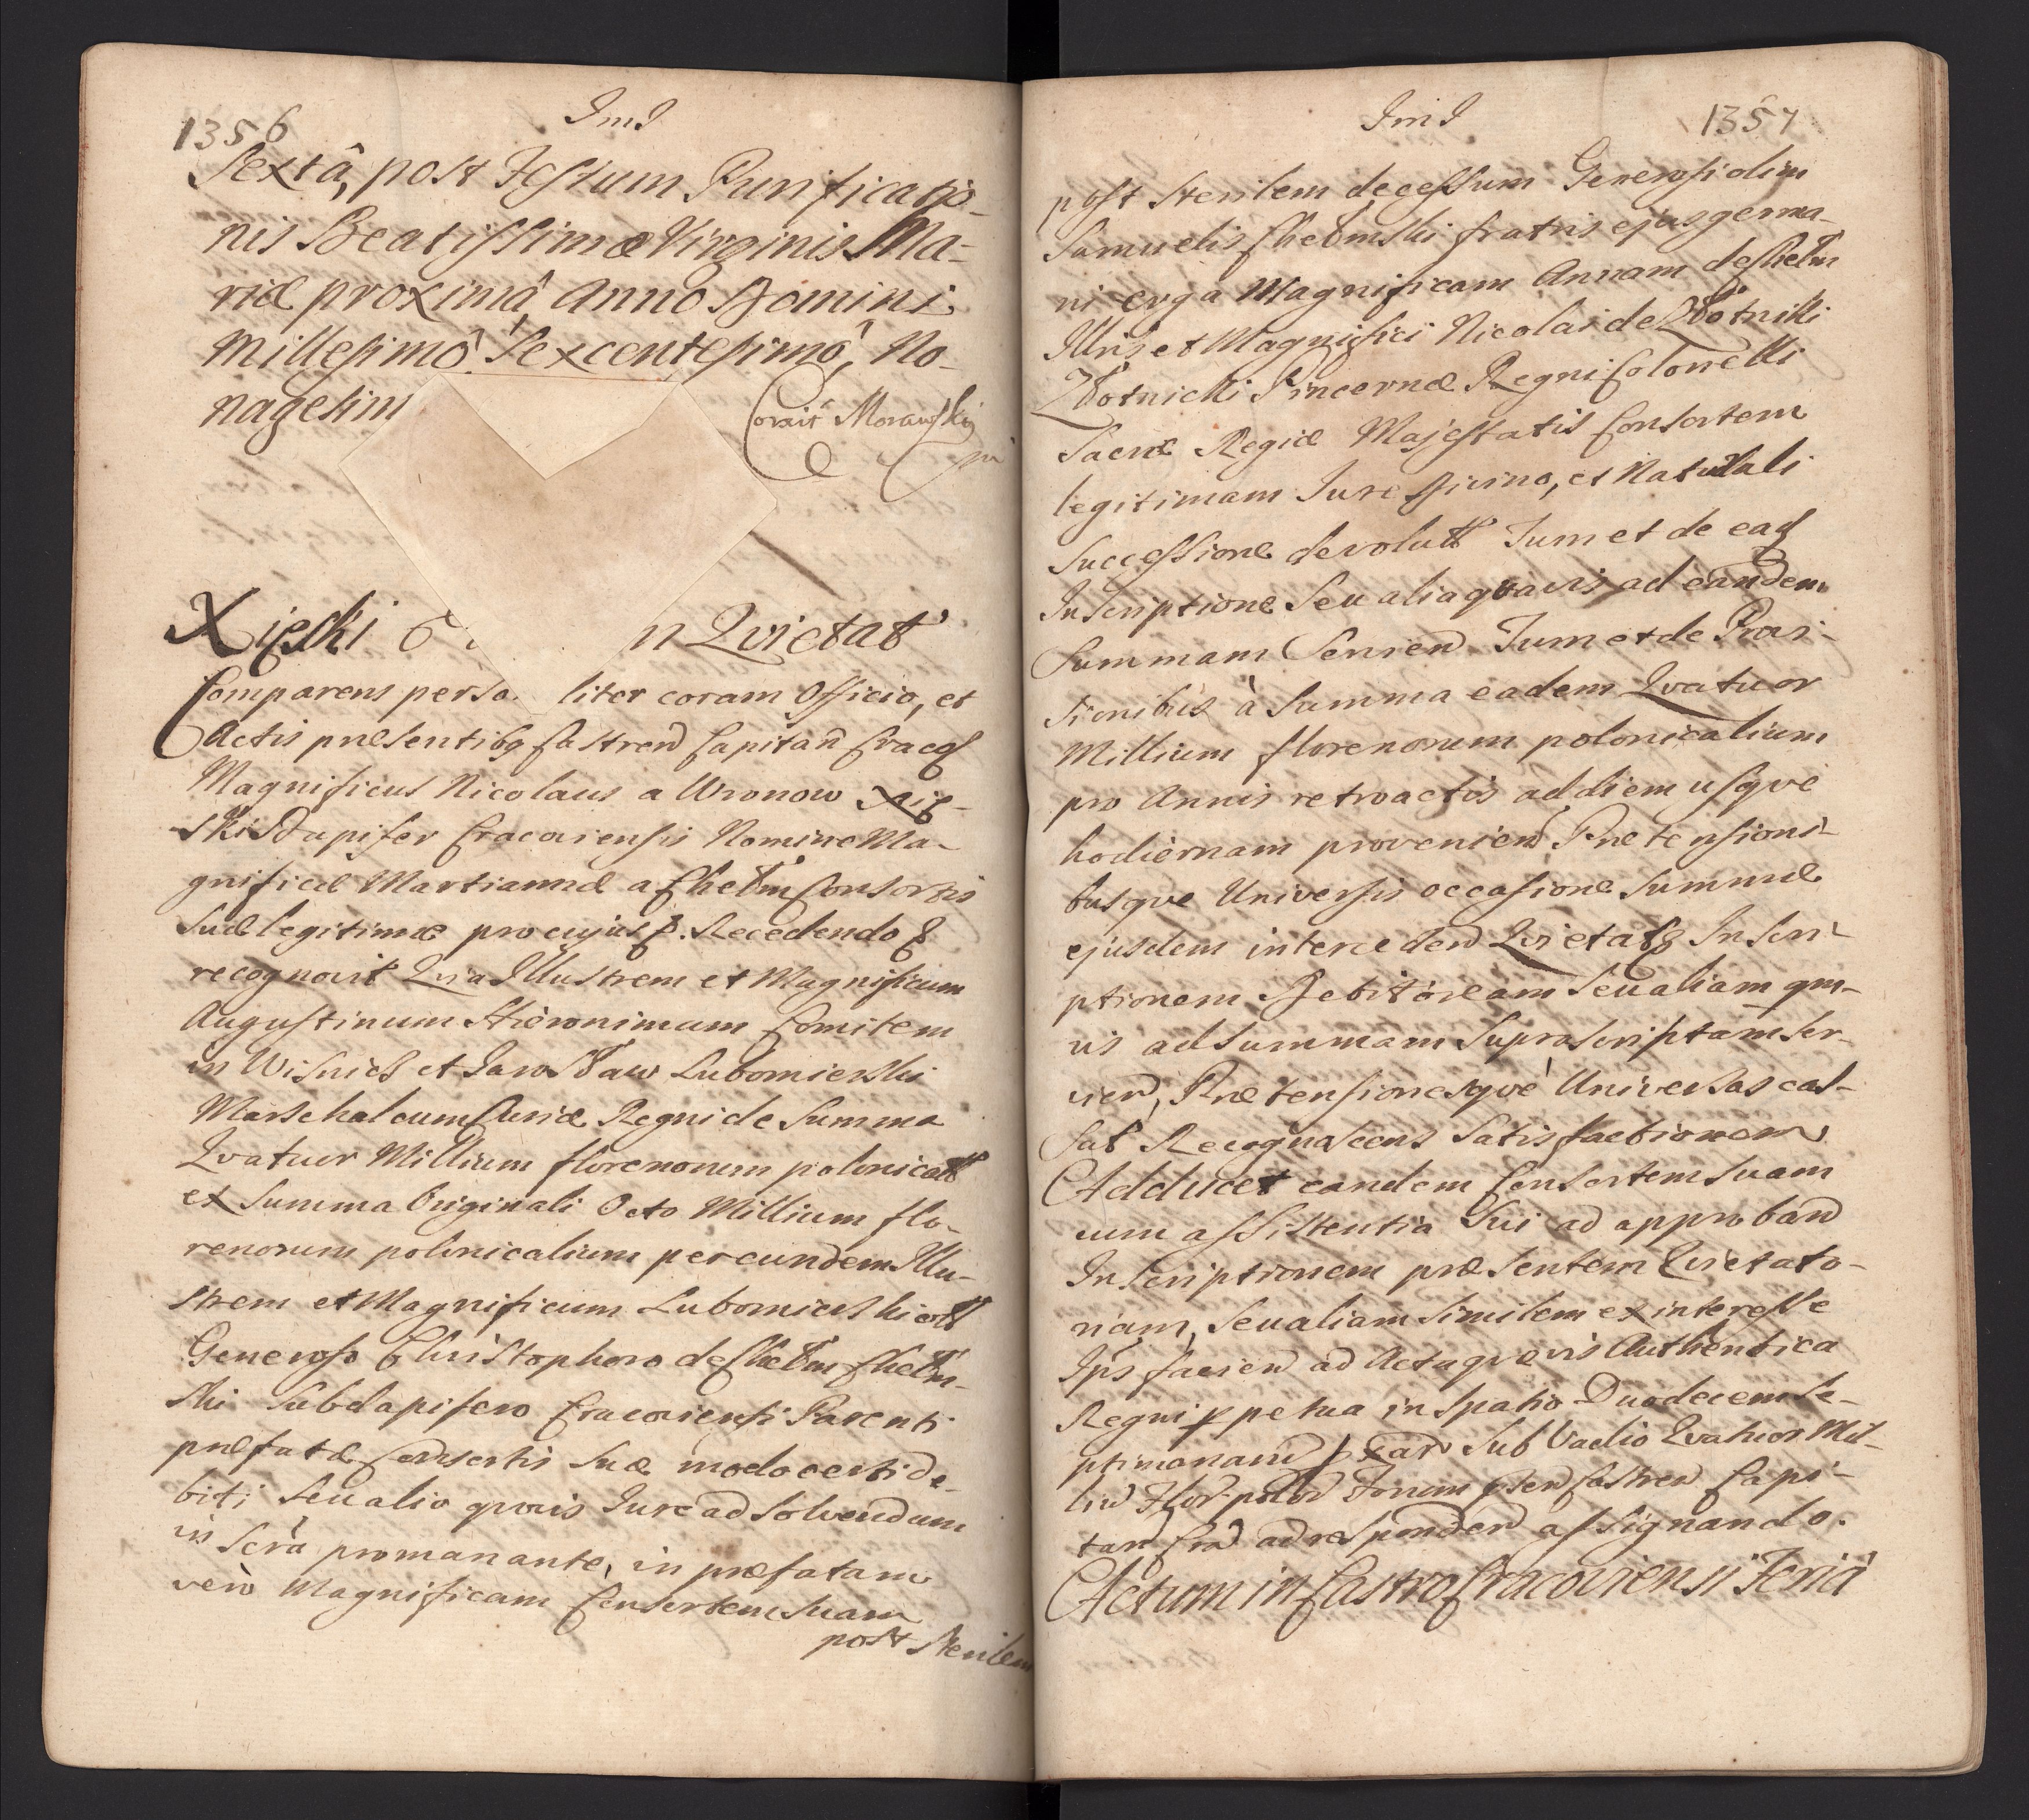 1356
ImI
Sextâ, post Festum Purificatio-
nis Beatissimæ Virginis Ma-
riæ proximâ, Anno Domini
Millesimô Sexcentesimô, No-
nagesim
Corait Morawskij
Xięski n Qvietat
Comparens perso liter coram Officio, et
Actis præsentibq Castren Capitan Cracq
Magnificus Nicolaus a Wronow Xię-
ski Dapifer Cracoviensis Nomine Ma-
gnificæ Martiannæ a Chełm Consortis
Suæ legitimæ pro cujus p. Recedendo
recognovit Qvia Illustrem et Magnificum
Augustinum Hieronimum Comitem
in Wisnicz et Jarosław Lubomierski
Marschalcum Curiæ Regni de Summa
Qvatuor Millium florenorum polonicall
ex Summa Originali Octo Millium flo-
renorum polonicalium per eundem Illu-
strem et Magnificum Lubomierski oll
Generoso Christophoro de Chełm Chełm-
ski Subdapifero Cracoviensi Parenti
præfatæ Consortis Suæ modo certi de-
biti Seu alio qvovis Jure ad Solvendum
inscra promanante, in præfatam
verò Magnificam Consortem Suam
post Sterilem
ImI
1357
post Sterilem decessum Generosi olim
Samuelis Chełmski fratris ejus germa-
ni erga Magnificam Annam de Chełm
Illris et Magnifici Nicolai de Złotniki
Złotnicki Pincernæ Regni Colonelli
Sacræ Regiæ Majestatis Consortem
legitimam Jure Divino, et Naturali
Successione devolutt Tum et de ead
Inscriptione Seu alia qvavis ad eandem
Summam Servien Tum et de Provi-
sionibus à Summa eadem Qvatuor
Millium florenorum polonicalium
pro Annis retroactis ad diem usqve
hodiernam provenien Prætensioni-
busqve Universis occasione Summæ
ejusdem interceden Qvietatq Inscri-
ptionem Debitoream Seu aliam qva-
vis ad Summam Suprascriptam Ser-
vien, Prætensionesqvè Universas cas-
sat Recognoscens Satisfactionem
Adducet eandem Consortem Suam
cum assistentia Sui ad approband
Inscriptionem præsentem Qvietato-
riam, Seu aliam Similem ex interesse
Ips facien ad Acta qvævis Authentica
Regni ppetua in Spatio Duodecem Se-
ptimanar Sub Vadio Qvatuor Mil-
liu Flor polod Forum psen Castren Capi-
tan Cra ad responden assignando.
Actum in Castro Cracoviensi Feriâ